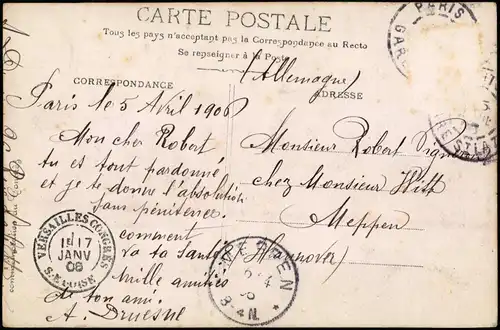 CARTE POSTALE
Tous les pays n'acceptent pas la Correspondance au Recto
Se renseigner à la Poste
(Allemagne)
CORRESPONDANCE
ADRESSE
Paris le 5 Avril 1906
Mon cher Robert
tu es tout pardonné
et je te donne l'absolution
sans pénitence.
comment
va ta santé
mille amitiés
de ton ami.
A. Druesne
Monsieur Robert
chez Monsieur Witt
Meppen
(Hannover)
PARIS
GARE
ST LAZ
VERSAILLES CONGRES
1E 17
JANV
06
S.-&-OISE
MEPPEN